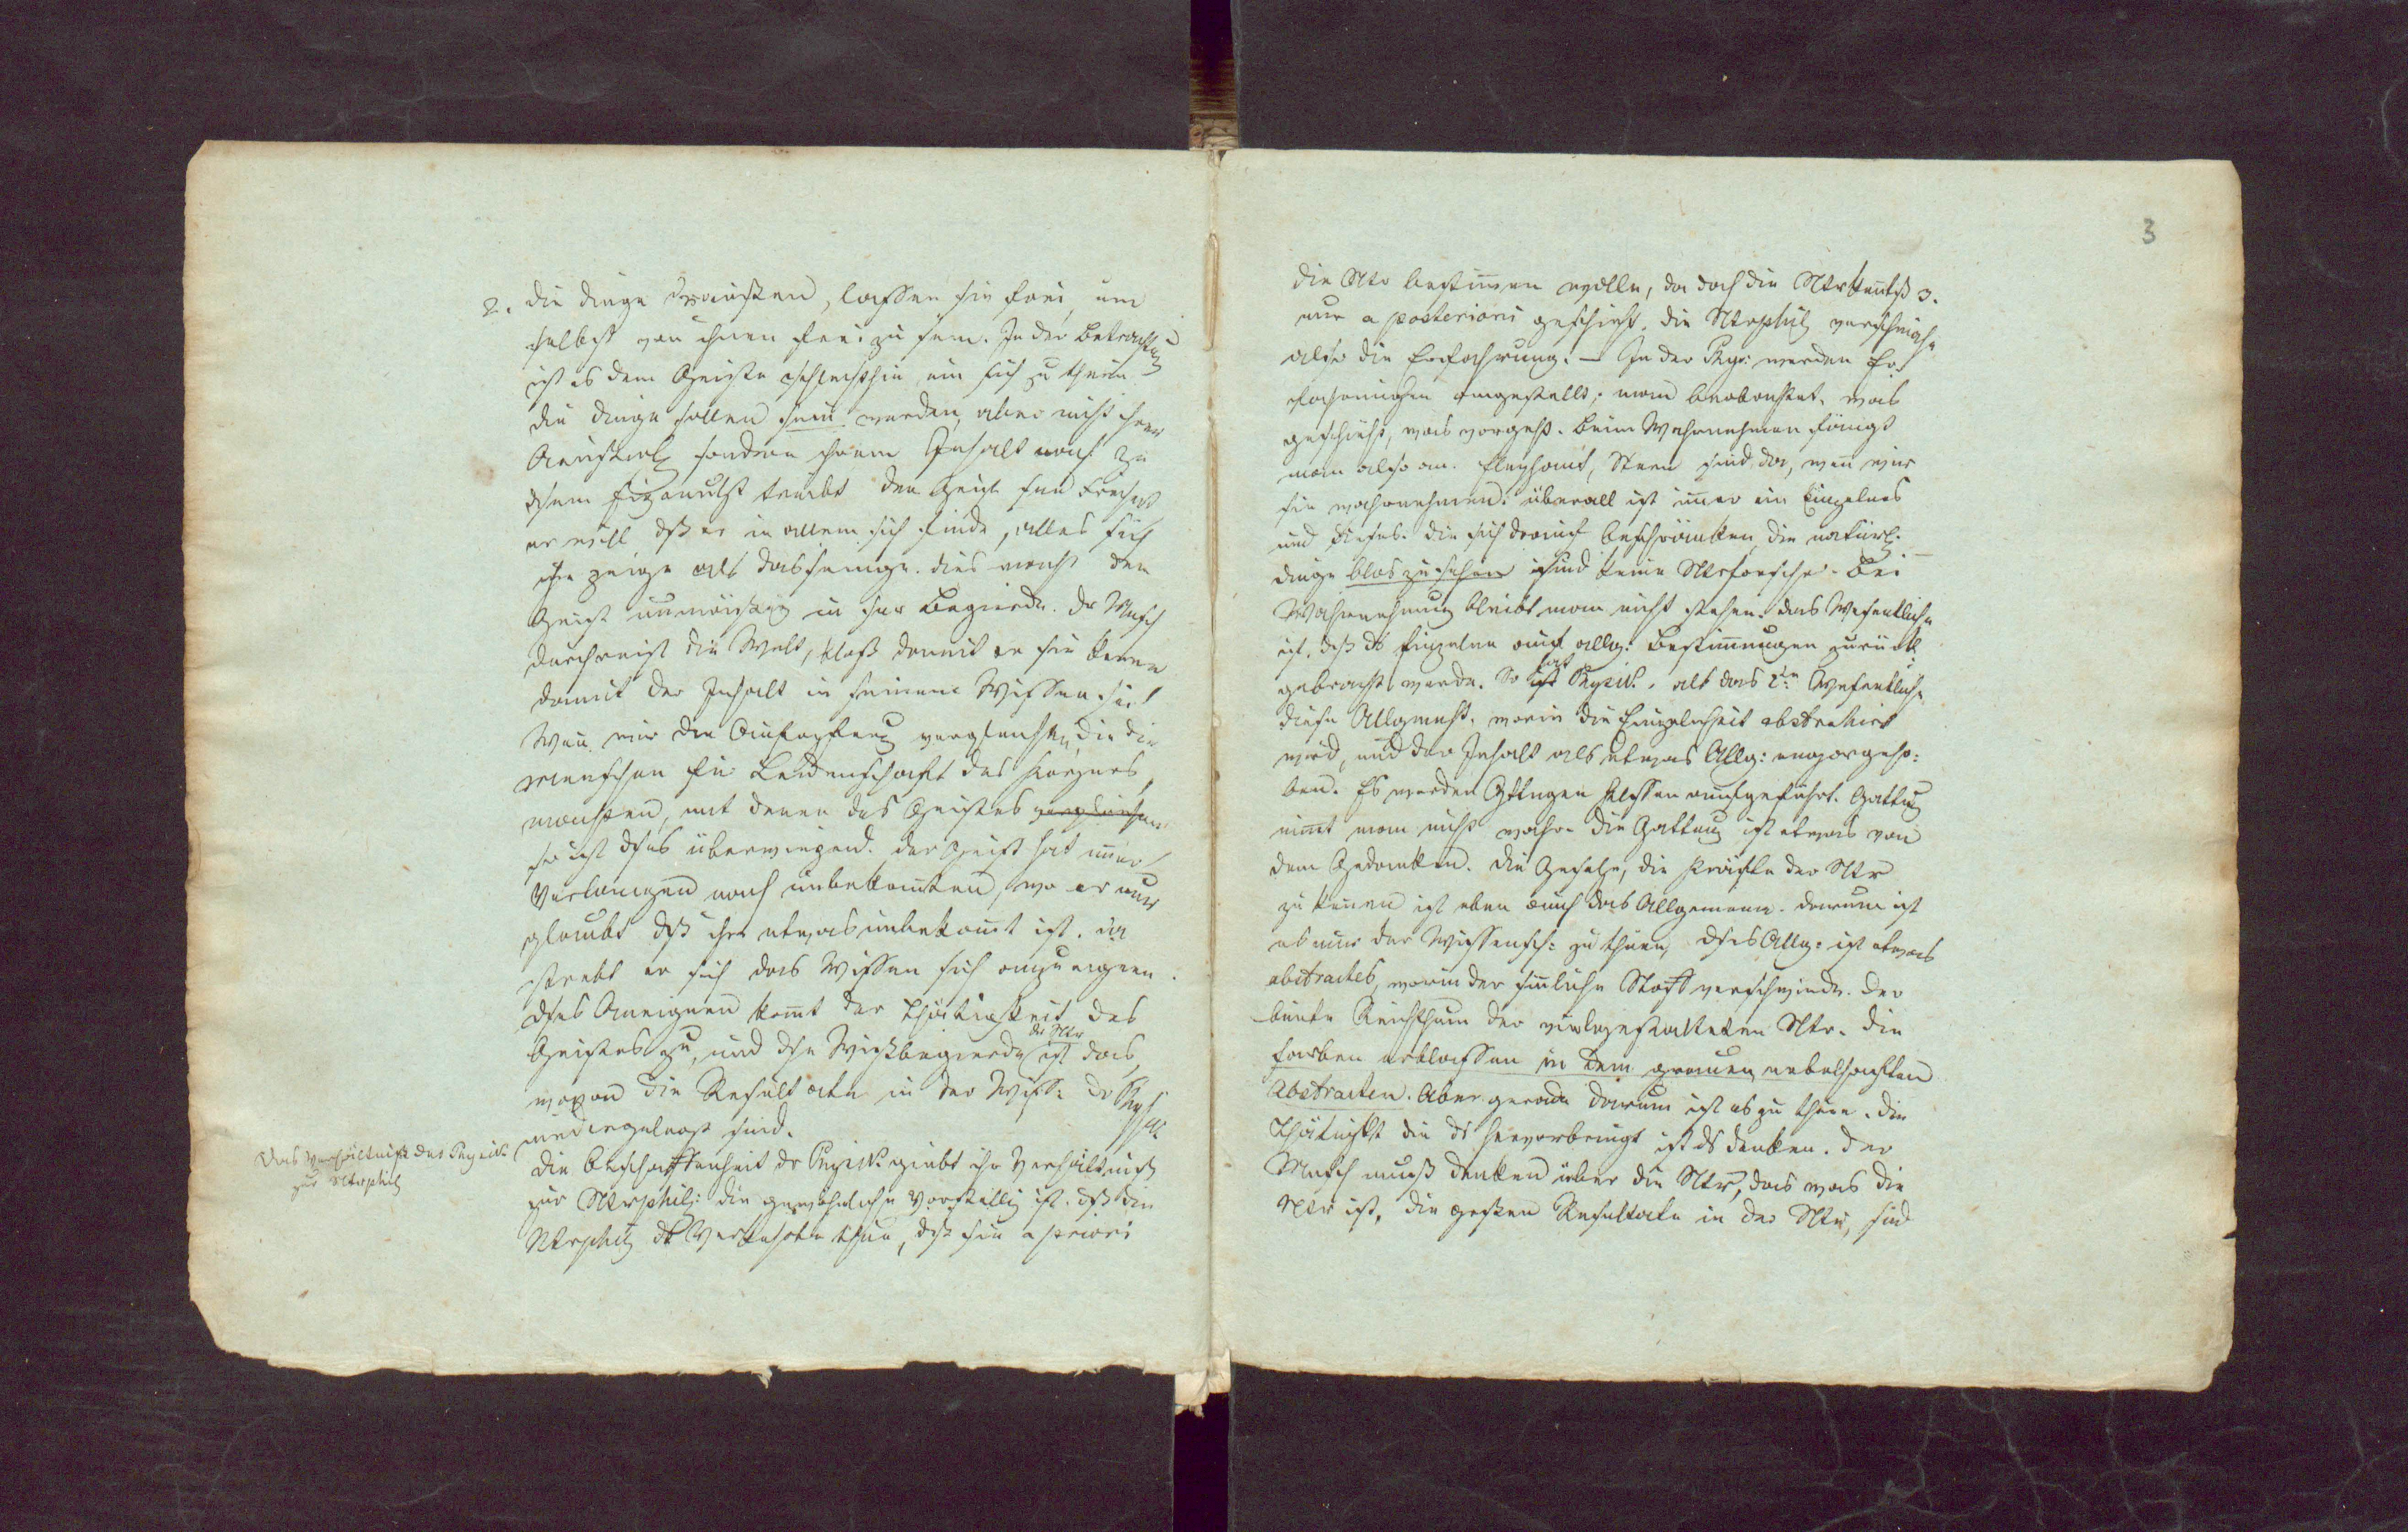 2. die Dinge draußen, lassen sie frei, um
selbst von ihnen frei zu sein. In der Betrachtung
ist es dem Geiste schlechthin um sich zu thun.
die Dinge sollen sein werden, aber nicht ihrer
sondern ihrem Inhalt nach zu
treibt den Geist
er will dß er in allem sich finde, alles sich
ihm zeige als das seinige. dies macht den
Geist unmäßig in sr Begierde. Dr Mnsch
durchreist die Welt, bloß damit er sie kenne
damit der Inhalt in seinem Wissen sei
Wenn wir die Aufopferung vergleichen, die die
Menschen für Leidenschaft des Herzens
machen, mit denen des Geistes vergleichen
so ist dses überwiegend. der Geist hat immer
Verlangen nach unbekanntem, wo er nur
glaubt dß ihm etwas unbekannt ist.
strebt er sich das Wissen sich anzueignen.
dses Aneignen kommt der Thätigkeit des
Geistes zu, und dse Wißbegierde der Ntr ist das,
wovon die Resultate in der Wiss: dr Physik
niedergelegt sind.
Das Verhältniß der Physik
zur Ntrphil
die Beschaffenheit dr Physik giebt ihr Verhältniß
zur Ntrphil: die gewöhnliche Vorstellg ist. dß die
Ntrphil ds Verkehrte thue, dß sie a priori
3
die Ntr bestimmen wolle, da doch die Ntrkenntß 3.
nur a posteriori geschieht. die Ntrphil verschmähe
also die Erfahrung. – In der Phys: werden Er
fahrungen angestellt; man beobachtet, was
geschieht, was vorgeht. Beim Wahrnehmen fängt
man also an. Elephant, Stern sind da, wenn wir
sie wahrnehmen: überall ist immer ein Einzelnes
und dieses. die sich darauf beschränken, die natürl.
Dinge blos zu sehen sind keine Ntrforscher. Bei
Wahrnehmung bleibt man nicht stehen. das Wesentliche
ist, dß ds Einzelne auf allg: Bestimmungen zurück
gebracht werde. So hat Physik. als das 2te Wesentliche
diese Allgmheit. worin die Einzelnheit abstrahirt
wird, und der Inhalt als etwas Allg: emporgeho:
ben. Es werden Gttngen Klassen aufgeführt. Gattung
nimmt man nicht wahr. die Gattung ist etwas von
dem Gedanken. Die Gesetze, die Kräfte der Ntr
zu kennen ist eben auch das Allgemeine. darum ist
es nur der Wissensch: zu thun, dses Allg: ist etwas
abstractes, worin der sinnliche Stoff verschwinde. der
bunte Reichthum der vielgestalteten Ntr. Die
Farben erblassen in dem grauen nebelhaften
Abstracten. Aber gerade darum ist es zu thun. die
Thätigkt die ds hervorbringt ist ds Denken. Der
Mnsch muß denken über die Ntr, das was die
Ntr ist, die großen Resultate in der Ntr, sind